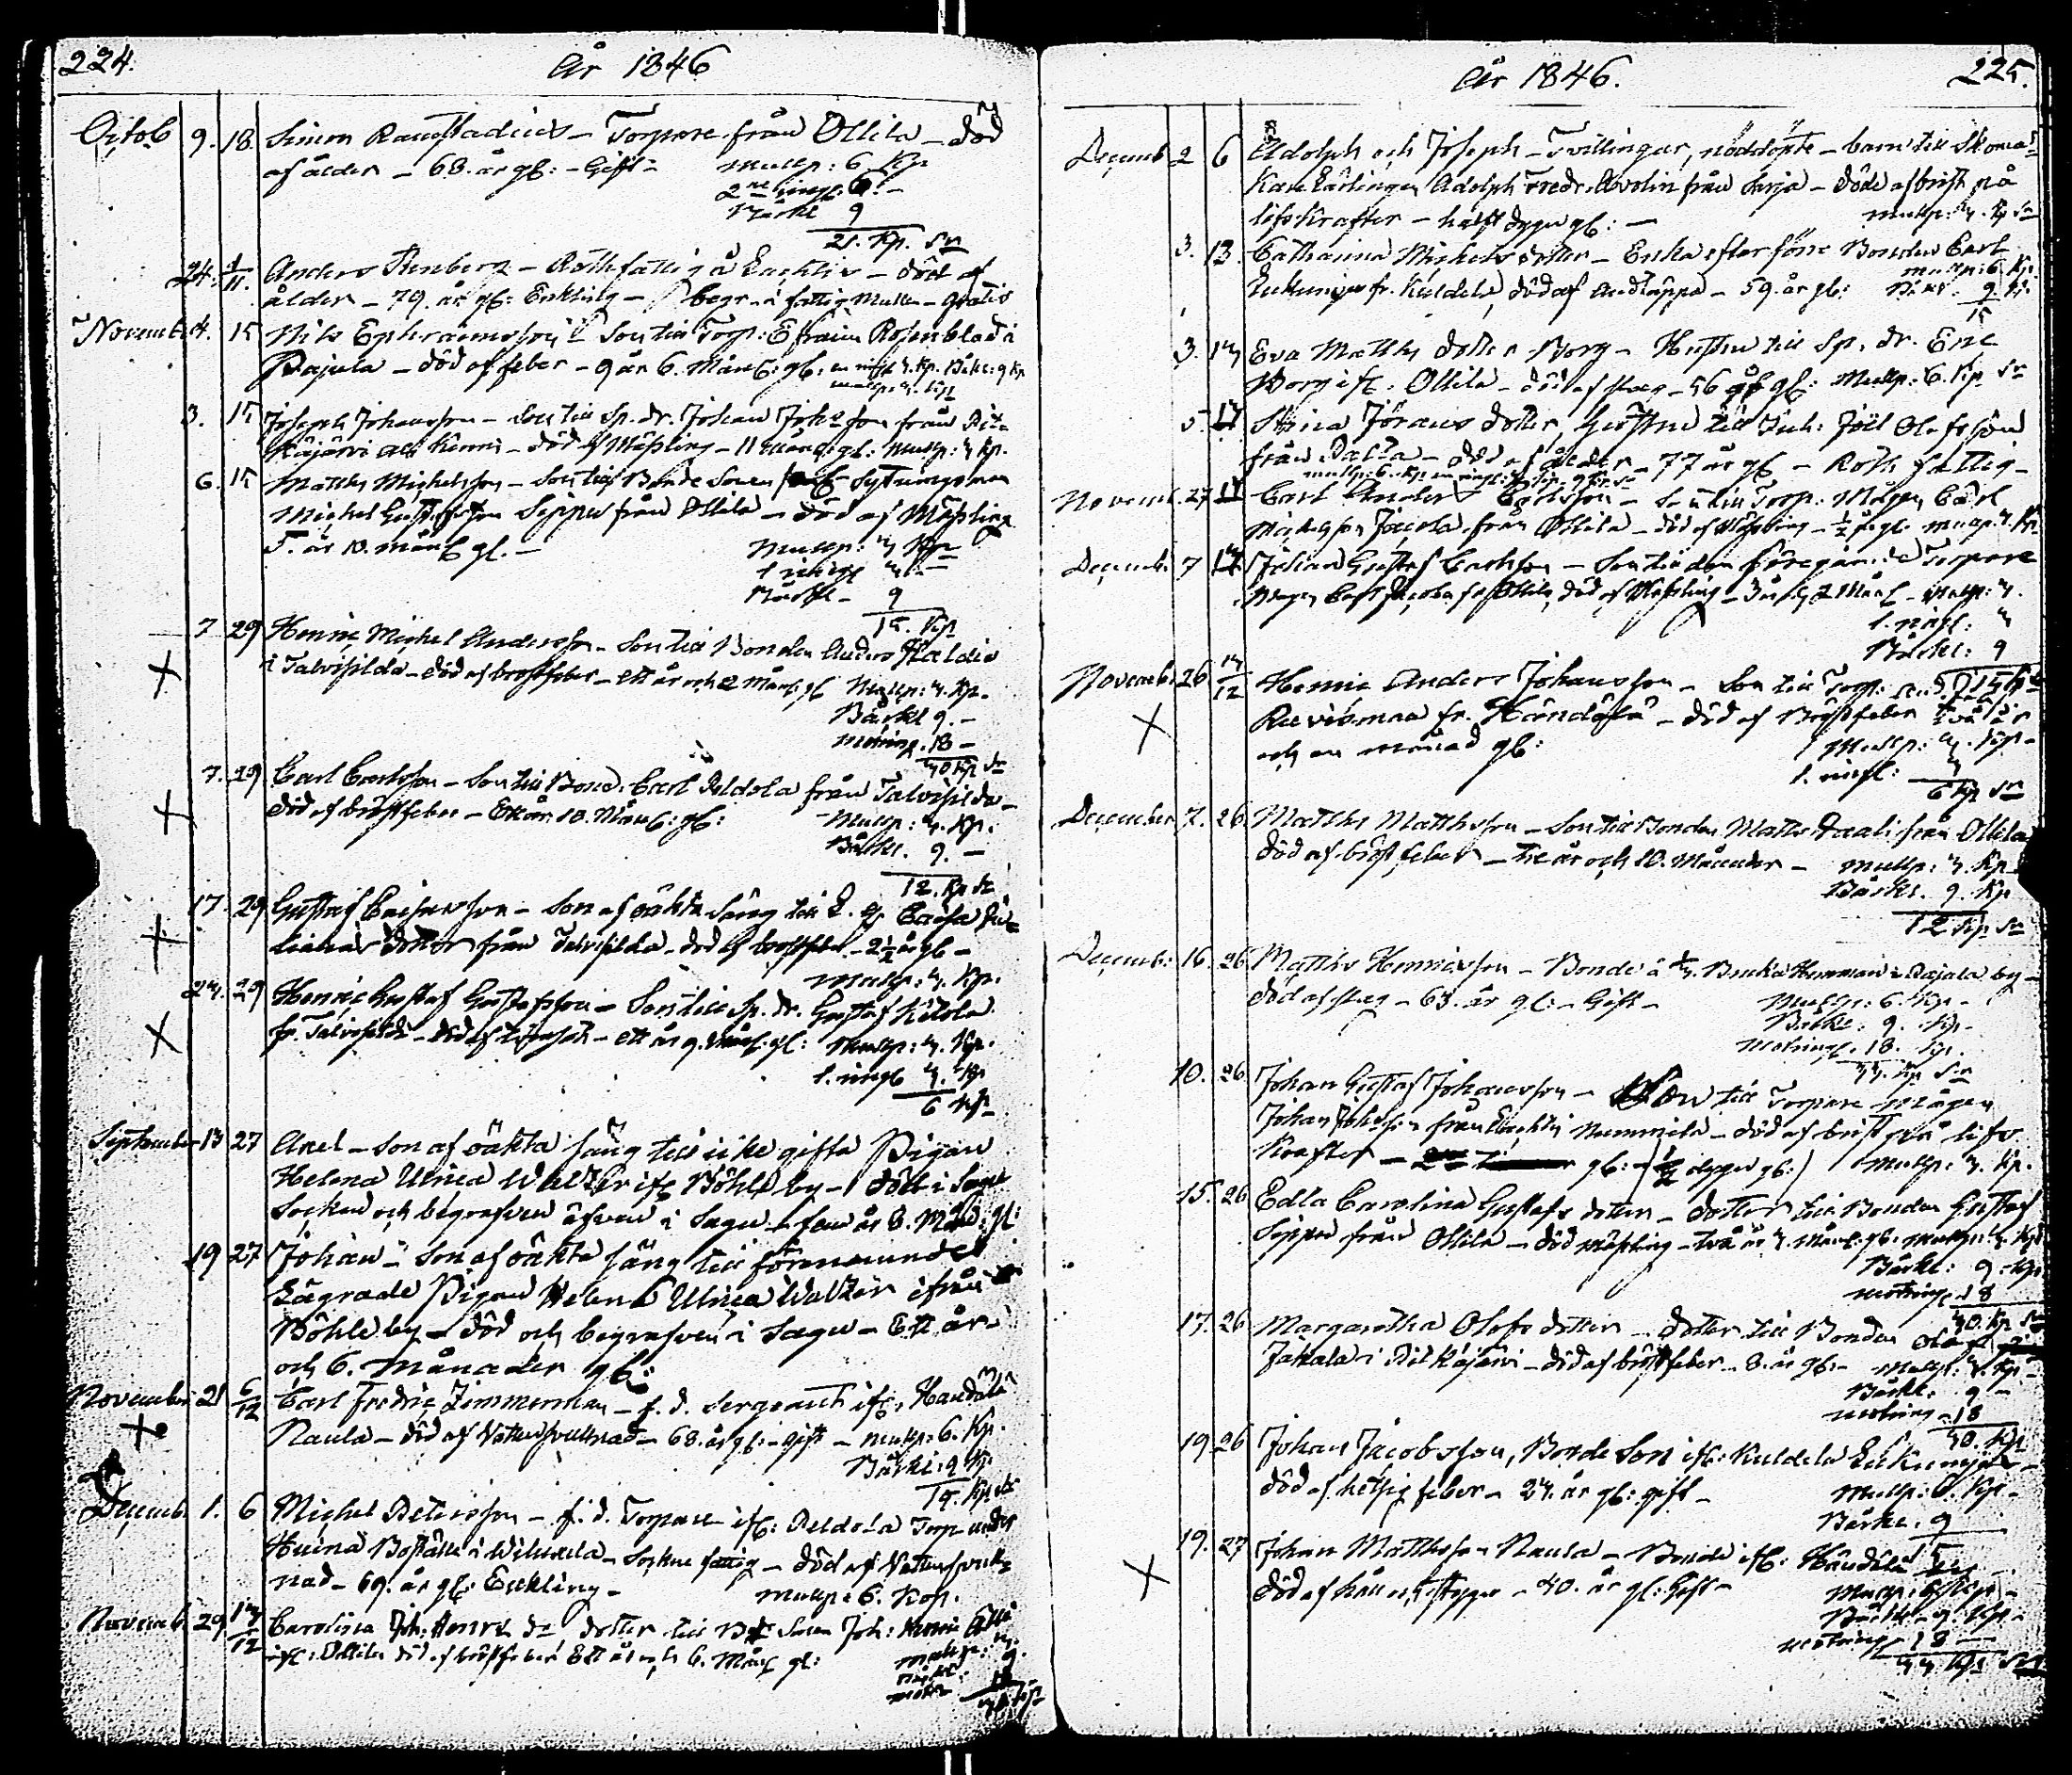 224.
År 1846
Octob 9. 18. Simon Ramstadius – Torpare från Ollila – död
af ålder – 68. år gl: – Gift – Mullp: 6 Kp
2ne ringl. 6. –
Bårkl 9
21. Kp. Sr
24. 1/11. Anders Renberg – Rothfattig å – död af
ålder – 79. år gl: Enkling – begr. i fattig mullen – gratis
Novemb. 4. 15 Nils Ephraimsson – Son till Torp: Efraim Rosenblad i
Pajula – död af feber – 9 år 6. Mån: gl: en ringl 3. Kp. Bårkl: 9 Kp
mullp. 3. Kp
3. 15 Joseph Johansson – Son till Sp. dr. Johan Johsson från Pit-
käjärvi – död af Mässling – 11 Mån: gl: Mullp: 3 Kp.
6. 15 Matths Michelsson – Son till Bonde Sonen Sytningsman
Michel Seppes från Ollila – död af Mässling
5. år 10. mån gl. – Mullp: 3 Kp
1 ringl 3. –
Bårkl – 9
15. Kp
7 29 Henric Michel Andersson – Son till Bonden Anders
i Talvisilda – död af bröstfeber – ett år och 2 Mån: gl Mullp: 3. Kp.
Bårkl 9. –
Motring. 18 –
30 Kp Sr
7. 29 Carl Carlsson – Son till Bond. Carl Peldola från Talvisilda –
död af bröstfeber – Ett år 10. Mån: gl: Mullp: 3. Kp.
Bårkl. 9. –
12. Kp Sr
17. 29 Gustaf – Son af oäkta säng till Cajsa Ju-
liana dotter från Talvisilda – död af bröstfeber – 2½ år gl –
Mullp: 3. Kp.
23. 29 Henric Gustaf Gustafsson – Son till Sp. dr. Gustaf Kitola
fr. Talvisilda – död af – ett år 9. Mån: gl: Mullp: 3. Kp.
1. ringl 3. Kp
6 Kp
September 13 27 Axel – Son af oäkta säng till icke gifta Pigan
Helena Ulrica Walzer ifr. Böhle by – död i Sagu
Socken och begrafven äfven i Sagu – fem år 8. Mån: gl:
19 27 Johan – Son af oäkta säng till förenämnde
Lägrade Pigan Helena Ulrica Walzer ifrån
Böhle by – död och begrafven i Sagu – Ett år
och 6. Månader gl:
November 21 6/12 Carl Fredric Zimmerman – f. d. Sergeant ifr. Handälä
Naula – död af Vattusvullnad – 68. år gl: – gift – mullp: 6. Kp.
Bårkl: 9 Kp.
15. Kp Sr
Decemb. 1. 6 Michel Petersson – f. d. Torpare ifr: Peldola Torp under
Huina Boställe i Wilnala – Socken fattig – död af Vattusvull-
nad – 69. år gl: Enkling – Mullp: 6. Kop.
Novemb. 29 13/12 Carolina Joh: Henrs dr dotter till Sonen Joh: Henric
ifr: Ollila död af bröstfeber Ett år och 6. Mån gl: Mullp: 3.
Bårkl: 9.
225.
År 1846.
Decemb 2 6 Adolph och Joseph – Tvillingar, nöddöpte – barn till Skoma-
kare Lärlingen Adolph Fredr. Avolin från Sarja – döde af brist på
lifs krafter – halft dygn gl: – mullp: 3. Kp Sr
3. 13. Catharina Michels dotter – Enka efter förre Bonden Carl
fr. Kuldela, död af andtäppa – 59. år gl: mullp: 6. Kp
Bårkl. 9. Kp.
15
3. 13 Eva Matths dotter Borg – Hustru till Sp. dr. Eric
Borg ifr. Ollila – död af slag – 56 år gl: Mullp: 6. Kp Sr
5. Stina Jörans dotter, Hustru till Inh: Joël Olofsson
från – död af ålder – 77 år gl – Roth fattig –
Novemb. 27 Carl Anders Carlsson – Son till Torp: Mågen Carl
Jacola från Ollila – död af Mässling – ½ år gl. mullp. 3. Kp
Decemb. 7 Johan Gustaf Carlsson – Son till den föregående Torpare
Mågen Carl Jacola fr. Ollila, död af Mässling – 3 år & 2 Mån – Mullp: 3.
1. ringl: 3
Bårkl: 9
Novemb. 26 13/12 Henric Anders Johansson – Son till Torp:
fr. Handälä – död af Bröstfeber två år
och en månad gl: Mullp: 3. Kp –
1. ringl: 3
6 Kp Sr
December 7. 26. Matths Matthsson – Son till Bonden Matts Paali från Ollila
död af bröst feber – tre år och 10. Månader – mullp: 3. Kp
Bårkl. 9. Kp
12 Kp Sr
Decemb: 16. 26 Matths Henricsson – Bonde å Hemman i Pajula by –
död af slag – 63. år gl: – Gift – Mullp: 6. Kp –
Bårkl: 9. Kp –
Motringl. 18. Kp.
33. Kp Sr
10. 26. Johan Gustaf Johansson – Son till Torpare Mågen
Johan Johnsson från Nummila – död af brist på lifs
Krafter – gl: – (½ dygn gl:) Mullp: 3. Kp.
15. 26 Edla Carolina Gustafs dotter – dotter till Bonden Gustaf
Seppä från Ollila – död mässling – två år 3. Mån: gl: mullp: 3. Kp
Bårkl: 9. Kp
motring – 18
30. Kp Sr
17. 26 Margaretha Olofs dotter – dotter till Bonden Olof
Jakala i Pitkäjärvi – död af bröstfeber – 8. år gl: – Mullp: 3. Kp –
Bårkl. 9 –
motring – 18
30. Kp
19. 26 Johan Jacobsson, Bonde Son ifr: Kuldela
död af hetsig feber – 23. år gl: gift – Mullp: 6. Kp –
Bårkl. 9
15
19. 27 Johan Matthsson Naula – Bonde ifr: Handälä
död af håll och styng – 40. år gl: Gift – Mullp: 6 Kp –
Bårkl – 9. Kp –
motring – 18 –
33 Kp Sr